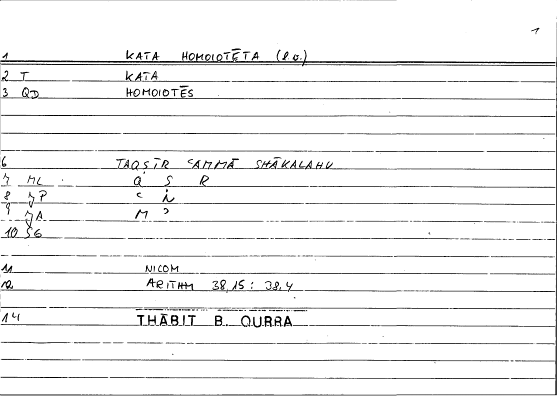 1
1 KATA HOMOIOTĒTA (l.c.)
2 T KATA
3 QD HOMOIOTĒS
6 TAQSĪR ʿAMMĀ SHĀKALAHU
7 ML Q S R
8 P ʿ N
9 A M ʾ
10 SG
11 NICOM
12 ARITHM 38,15 : 38,4
14 THĀBIT B. QURRA